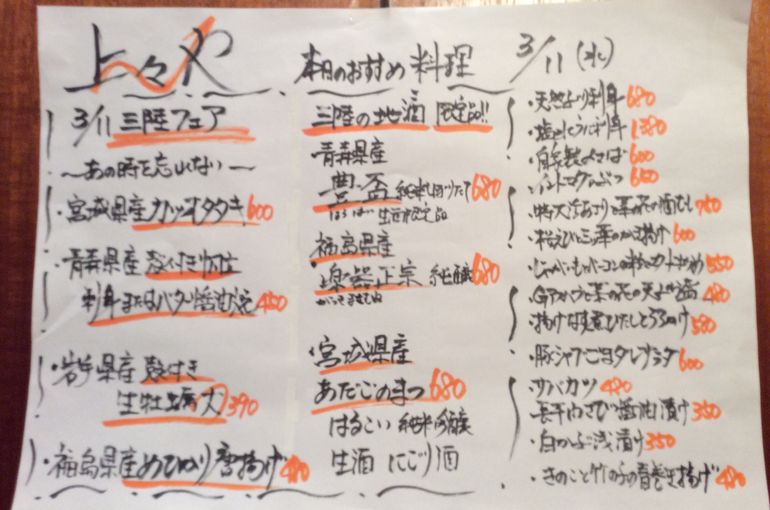 上々や
本日のおすすめ料理
3/11(水)
3/11 三陸フェア
〜あの時を忘れない〜
・宮城県産カツオタタキ 600
・青森県産殻付き帆立
刺身またはバター醤油焼 450
・岩手県産 殻付き
生牡蠣 大 390
・福島県産めひかり唐揚げ 480
三陸の地酒 限定品!!
青森県産
豊盃 純米しぼりたて 680
ほうはい 生酒 限定品
福島県産
楽器正宗 純醸 680
がっきまさむね
・宮城県産
あたごのまつ 680
はるこい 純米吟醸
生酒 にごり酒
・天然ぶり刺身 680
・塩水うに刺身 1380
・自家製〆さば 600
600
・菜の花の酒むし 780
・桜えびと三つ葉のかき揚げ 600
550
菜の花の天ぷら 480
・揚げなす煮びたしとろろかけ 580
・豚シャブごまタレサラダ 600
・サバカツ 480
・長芋わさび醤油漬け 350
・白かぶ浅漬け 350
・きのこと竹の子の春巻き揚げ 480